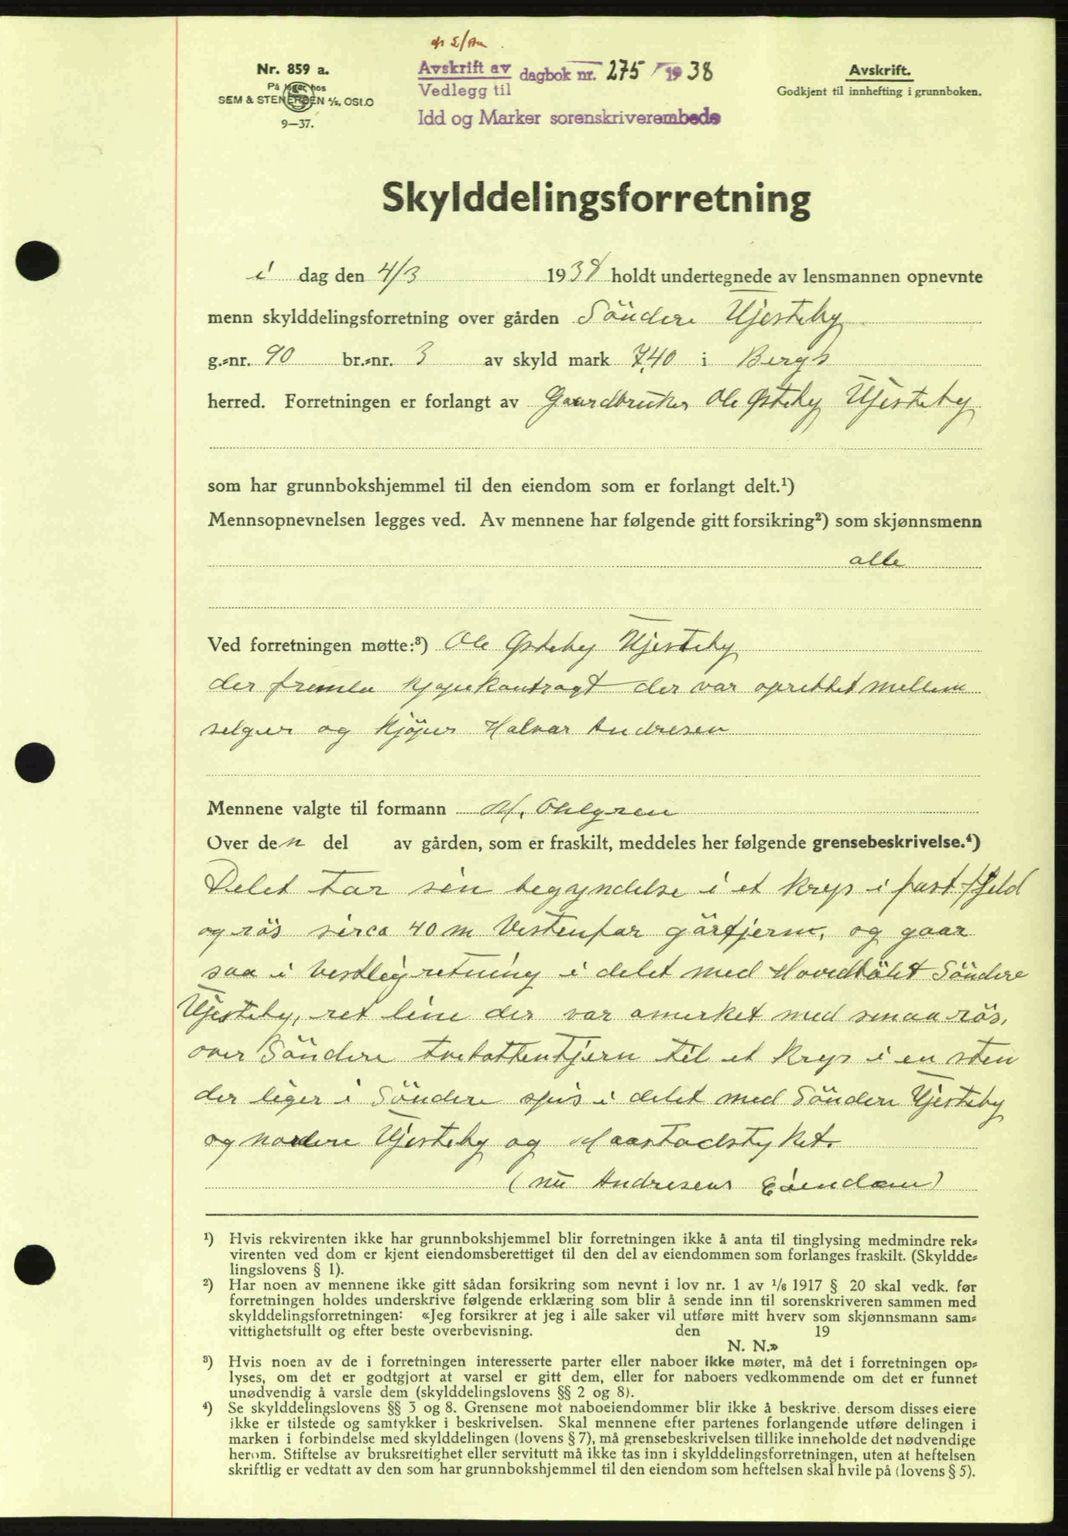 Nr. 859 a.
På lager hos
SEM & STENERSEN A/S, OSLO
9—37.
Avskrift av dagbok nr. 275 / 1938
Vedlegg til
Idd og Marker sorenskriverembede
Avskrift.
Godkjent til innhefting i grunnboken.
Skylddelingsforretning
i dag den 4/3 1938 holdt undertegnede av lensmannen opnevnte
menn skylddelingsforretning over gården Söndre Ujesteby
g.=nr. 90 br.=nr. 3 av skyld mark 7,40 i Bergs
herred. Forretningen er forlangt av Gaardbruker Ole Østeby Ujesteby
som har grunnbokshjemmel til den eiendom som er forlangt delt.¹)
Mennsopnevnelsen legges ved. Av mennene har følgende gitt forsikring²) som skjønnsmenn
alle
Ved forretningen møtte:³) Ole Østeby Ujesteby
der fremla kjøpekontragt der var oprettet mellem
selger og kjöper Halvar Andresen
Mennene valgte til formann M. Ohlgren
Over den del av gården, som er fraskilt, meddeles her følgende grensebeskrivelse.⁴)
Delet tar sin begyndelse i et krys i fast fjeld
og rös sirca 40 m Vestenfor gärtjern, og gaar
saa i vestlig retning i delet med Hovedbölet Söndre
Ujesteby, ret linie der var amerket med smaa rös,
over Söndre tjern til et krys i en sten
der liger i Söndre spis i delet med Söndre Ujesteby
og nordre Ujesteby og Maastadstyket.
(nu Andresens Eiendom)
¹) Hvis rekvirenten ikke har grunnbokshjemmel blir forretningen ikke å anta til tinglysing medmindre rek=
virenten ved dom er kjent eiendomsberettiget til den del av eiendommen som forlanges fraskilt. (Skyldde=
lingslovens § 1).
²) Har noen av mennene ikke gitt sådan forsikring som nevnt i lov nr. 1 av 1/6 1917 § 20 skal vedk. før
forretningen holdes underskrive følgende erklæring som blir å sende inn til sorenskriveren sammen med
skylddelingsforretningen: «Jeg forsikrer at jeg i alle saker vil utføre mitt hverv som skjønnsmann sam=
vittighetsfullt og efter beste overbevisning. den 19
N. N.»
³) Hvis noen av de i forretningen interesserte parter eller naboer ikke møter, må det i forretningen op=
lyses, om det er godtgjort at varsel er gitt dem, eller for naboers vedkommende om det er funnet
unødvendig å varsle dem (skylddelingslovens §§ 2 og 8).
⁴) Se skylddelingslovens §§ 3 og 8. Grensene mot naboeiendommer blir ikke å beskrive, dersom disses eiere
ikke er tilstede og samtykker i beskrivelsen. Skal mennene efter partenes forlangende utføre delingen i
marken i forbindelse med skylddelingen (lovens § 7), må grensebeskrivelsen tillike inneholde det nødvendige
herom. Stiftelse av bruksrettighet eller servitutt må ikke tas inn i skylddelingsforretningen, uten at heftelsen
skriftlig er vedtatt av den som har grunnbokshjemmel til den eiendom som heftelsen skal hvile på (lovens § 5).